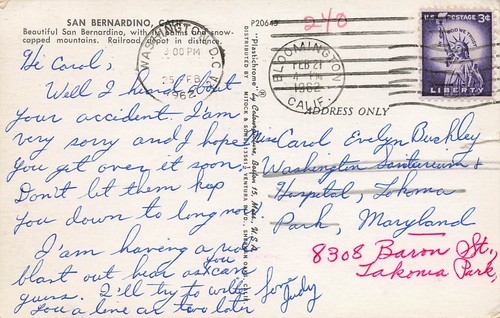 SAN BERNARDINO,
Beautiful San Bernardino, with its palms and snow-
capped mountains. Railroad depot in distance.
P20643
240
WASHINGTON, D.C.
3:00 PM
FEB
1962
BLOOMINGTON
FEB 21
4 PM
1962
CALIF.
IN GOD WE TRUST
3¢
LIBERTY
ADDRESS ONLY
"Plastichrome" by Colourpicture, Boston 15, Mass. U.S.A.
DISTRIBUTED BY MITOCK & SONS, 13561 VENTURA BLVD., SHERMAN OAKS, CALIF.
Hi Carol,
Well I heard about
your accident I am
very sorry and I hope
you get over it soon.
Don't let them hep
you down to long now
I'am having a real
blast out hear as you can
guess. I'll try to write
you a line or two later
love
Judy
Miss Carol Evelyn Buckley
Washington Sanitarium &
Hospital, Takoma
Park, Maryland
8308 Baron St.,
Takoma Park,